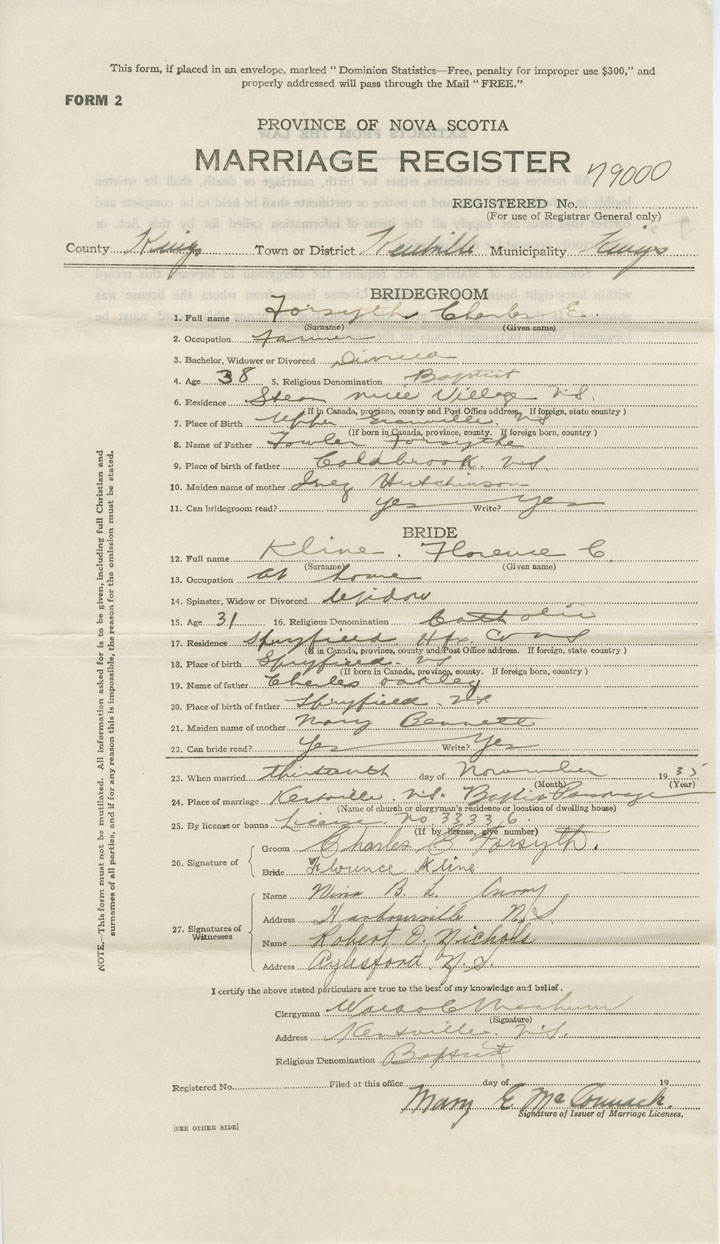 This form, if placed in an envelope, marked "Dominion Statistics—Free, penalty for improper use $300," and
properly addressed will pass through the Mail "FREE."
FORM 2
PROVINCE OF NOVA SCOTIA
MARRIAGE REGISTER 79000
REGISTERED No.
(For use of Registrar General only)
County Kings Town or District Kentville Municipality Kings
BRIDEGROOM
1. Full name Forsyth Charles E.
(Surname) (Given name)
2. Occupation Farmer
3. Bachelor, Widower or Divorced Divorced
4. Age 38 5. Religious Denomination Baptist
6. Residence Steam Mill Village N.S.
(If in Canada, province, county and Post Office address. If foreign, state country)
7. Place of Birth Upper Granville, NS
(If born in Canada, province, county. If foreign born, country)
8. Name of Father Fowler Forsythe
9. Place of birth of father Coldbrook. NS
10. Maiden name of mother Inez Hutchinson
11. Can bridegroom read? yes Write? yes
BRIDE
12. Full name Kline. Florence C.
(Surname) (Given name)
13. Occupation at home
14. Spinster, Widow or Divorced Widow
15. Age 31 16. Religious Denomination Catholic
17. Residence Spryfield Hfx. Co NS
(If in Canada, province, county and Post Office address. If foreign, state country)
18. Place of birth Spryfield. NS
(If born in Canada, province, county. If foreign born, country)
19. Name of father Charles Oakley
20. Place of birth of father Spryfield. NS
21. Maiden name of mother Mary Bennett
22. Can bride read? Yes Write? Yes
23. When married thirteenth day of November 1935
(Month) (Year)
24. Place of marriage Kentville. N.S. Baptist Parsonage
(Name of church or clergyman's residence or location of dwelling house)
25. By license or banns License No 33336.
(If by license, give number)
26. Signature of
Groom Charles E Forsyth.
Bride Florence Kline
27. Signatures of Witnesses
Name B. L.
Address Harbourville N.S.
Name Robert O. Nichols
Address Aylesford, N.S.
I certify the above stated particulars are true to the best of my knowledge and belief.
Clergyman
(Signature)
Address Kentville. N.S.
Religious Denomination Baptist
Registered No. Filed at this office day of 19
Mary E McCormack.
Signature of Issuer of Marriage Licenses.
[SEE OTHER SIDE]
NOTE.—This form must not be mutilated. All information asked for is to be given, including full Christian and
surnames of all parties, and if for any reason this is impossible, the reason for the omission must be stated.